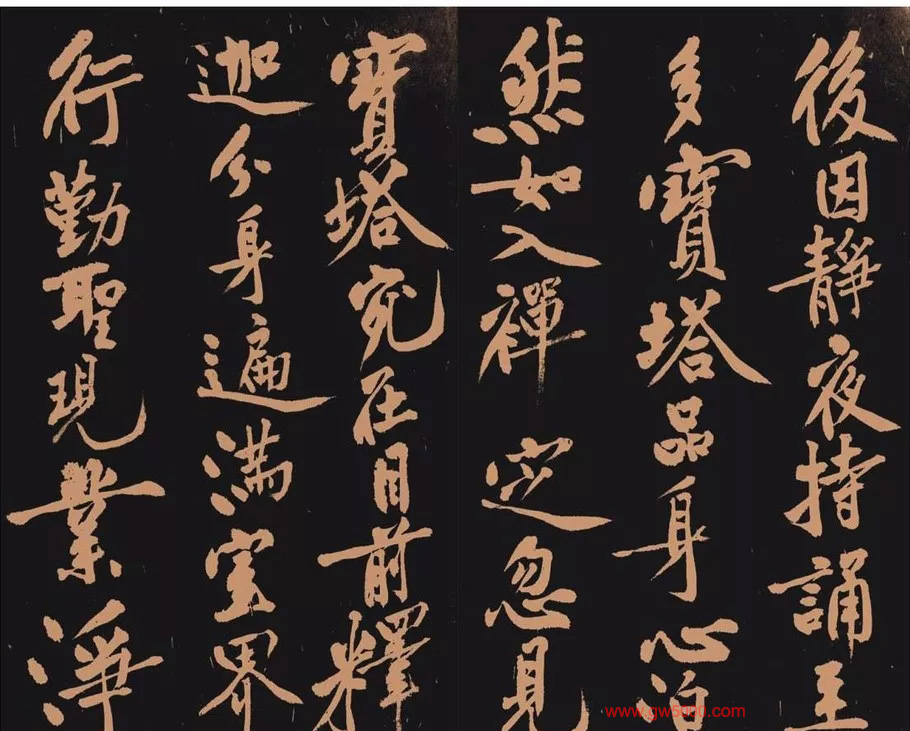 後因靜夜持誦至
多寶塔品身心泊
然如入禪定忽見
寶塔宛在目前釋
迦分身遍滿空界
行勤聖現業淨